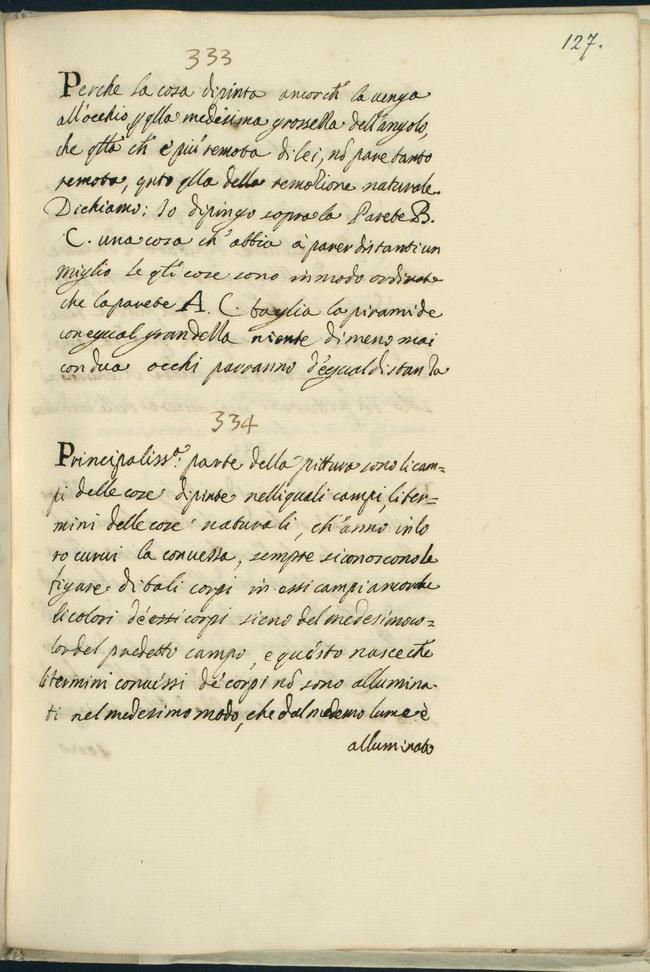 127.
333
Perche la cosa dipinta ancorch' la venga
all'occhio p qlla medesima grossezza dell'angolo,
che qlla ch' è più remota di lei, nõ pare tanto
remota, qnto qlla della remozione naturale.
Dichiamo: Io dipingo sopra la Parete B.
C. una cosa ch' abbia à paver distanti un
miglio le qli cose sono in modo ordinate
che la parete A. C. taglia la piramide
con equal grandezza niente di meno mai
con dua occhi parranno d'equal distanza
334
Principaliss.ª parte della pittura sono li cam=
pi delle cose dipinte nelli quali campi, li ter=
mini delle cose naturali, ch' anno in lo
ro curvi la convessa, sempre si conoscono le
figure di tali corpi in essi campi ancorche
li colori de essi corpi sieno del medesimo co=
lor del predetto campo, e questo nasce che
li termini convessi de' corpi nõ sono allumina=
ti nel medesimo modo, che dal medemo lume è
alluminato